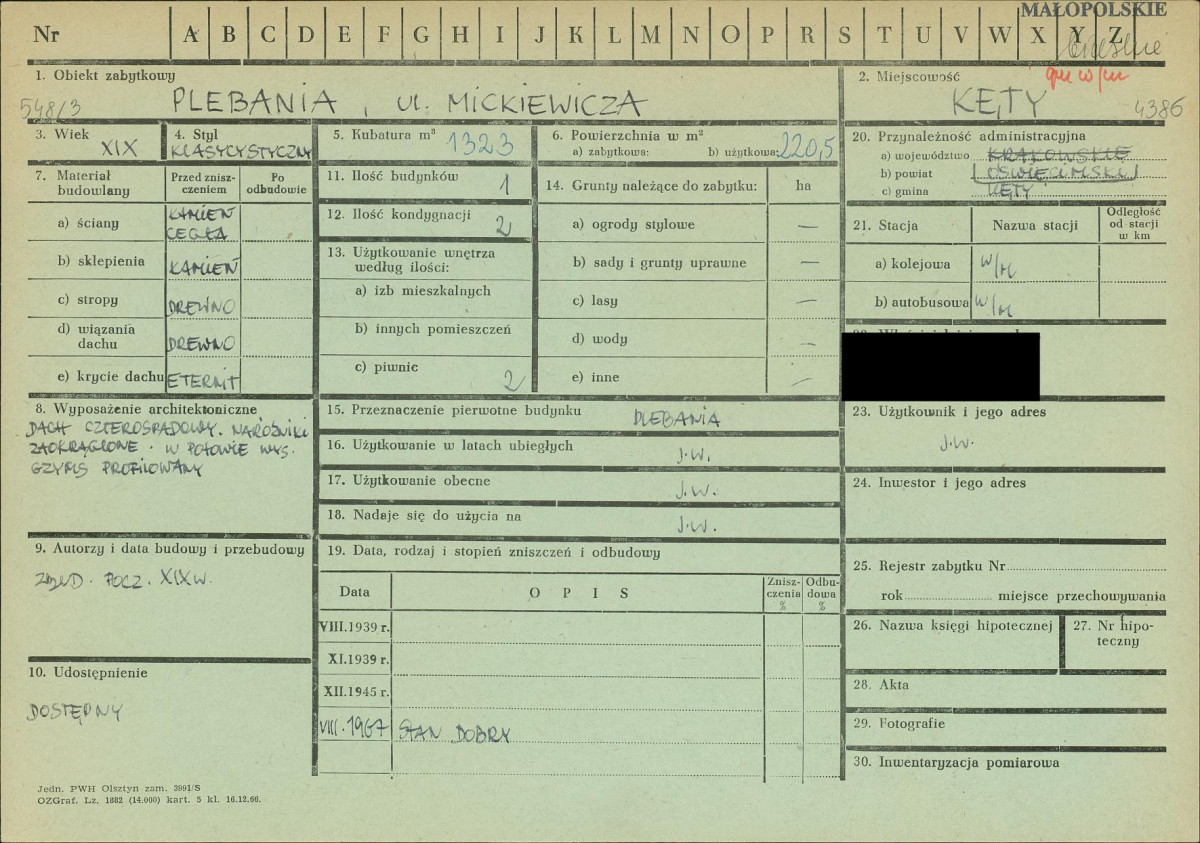 MAŁOPOLSKIE
Nr A B C D E F G H I J K L M N O P R S T U V W X Y Z
1. Obiekt zabytkowy
548/3
PLEBANIA, ul. MICKIEWICZA
2. Miejscowość
KĘTY
4386
3. Wiek
XIX
4. Styl
KLASYCYSTYCZNY
5. Kubatura m³ 1323
6. Powierzchnia w m²
a) zabytkowa: b) użytkowa: 220,5
7. Materiał budowlany
Przed zniszczeniem
Po odbudowie
a) ściany
KAMIEŃ
CEGŁA
b) sklepienia KAMIEŃ
c) stropy DREWNO
d) wiązania dachu DREWNO
e) krycie dachu ETERNIT
8. Wyposażenie architektoniczne
DACH CZTEROSPADOWY. NAROŻNIKI
ZAOKRĄGLONE. W POŁOWIE WYS.
GZYMS PROFILOWANY
9. Autorzy i data budowy i przebudowy
ZBUD. POCZ. XIX W.
10. Udostępnienie
DOSTĘPNY
11. Ilość budynków 1
12. Ilość kondygnacji 2
13. Użytkowanie wnętrza
według ilości:
a) izb mieszkalnych
b) innych pomieszczeń
c) piwnic 2
14. Grunty należące do zabytku: ha
a) ogrody stylowe —
b) sady i grunty uprawne —
c) lasy —
d) wody —
e) inne —
15. Przeznaczenie pierwotne budynku PLEBANIA
16. Użytkowanie w latach ubiegłych J.W.
17. Użytkowanie obecne J.W.
18. Nadaje się do użycia na J.W.
19. Data, rodzaj i stopień zniszczeń i odbudowy
Data OPIS Zniszczenia % Odbudowa %
VIII.1939 r.
XI.1939 r.
XII.1945 r.
VIII.1967 STAN DOBRY
20. Przynależność administracyjna
a) województwo KRAKOWSKIE
b) powiat OŚWIĘCIMSKI
c) gmina KĘTY
21. Stacja Nazwa stacji Odległość od stacji w km
a) kolejowa W/M
b) autobusowa W/M
23. Użytkownik i jego adres
J.W.
24. Inwestor i jego adres
25. Rejestr zabytku Nr
rok miejsce przechowywania
26. Nazwa księgi hipotecznej
27. Nr hipoteczny
28. Akta
29. Fotografie
30. Inwentaryzacja pomiarowa
Jedn. PWH Olsztyn zam. 3991/S
OZGraf. Lz. 1882 (14.000) kart. 5 kl. 16.12.66.